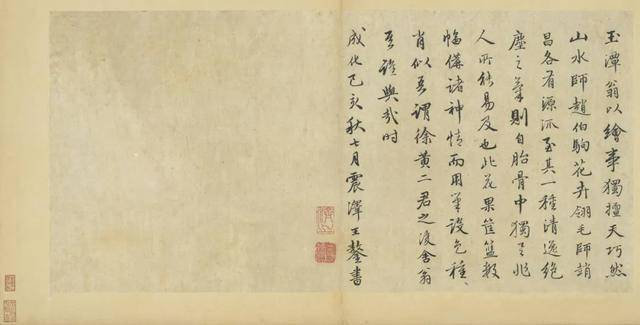 玉潭翁以繪事獨擅天巧然
山水師趙伯駒花卉翎毛師趙
昌各有源流至其一種清逸絕
塵之筆則自胎骨中獨之非
人所能易及也此花果筐籃數
幅備諸神情而用筆設色種〻
肖似吾謂徐黃二君之後舍翁
吾誰與哉時
成化己亥秋七月震澤王鏊書